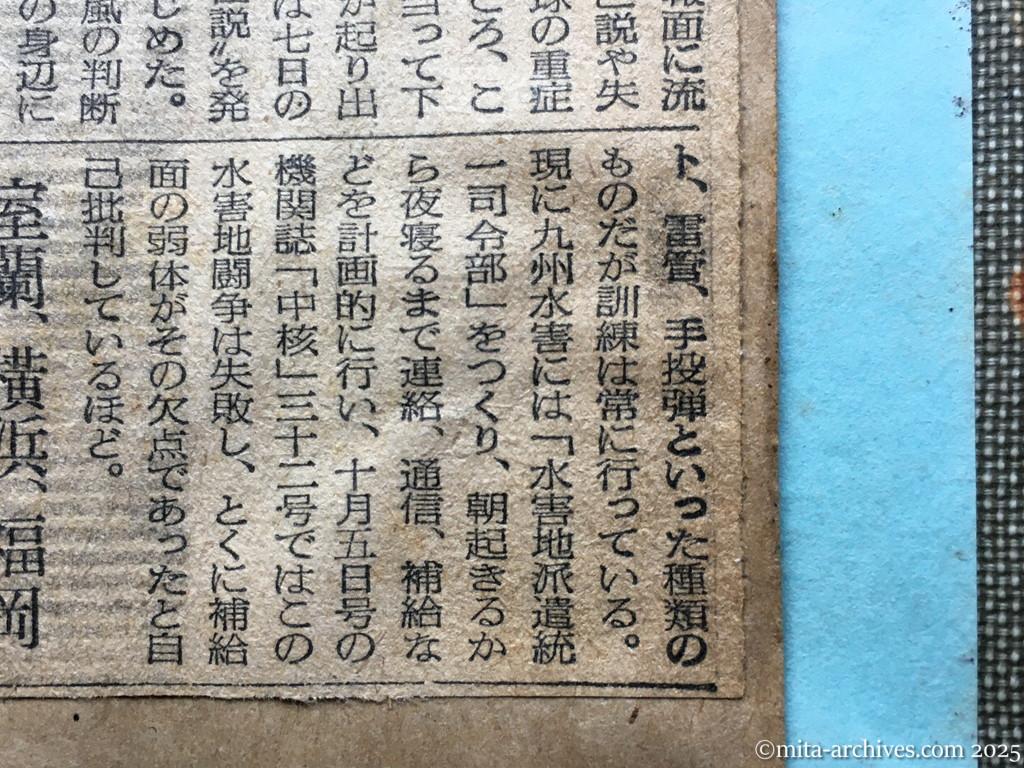 報面に流
説や失
球の重症
ころ、こ
当って下
が起り出
は七日の
説〟を発
じめた。
風の判断
の身辺に
ト、雷管、手投弾といった種類の
ものだが訓練は常に行っている。
現に九州水害には「水害地派遣統
一司令部」をつくり、朝起きるか
ら夜寝るまで連絡、通信、補給な
どを計画的に行い、十月五日号の
機関誌「中核」三十二号ではこの
水害地闘争は失敗し、とくに補給
面の弱体がその欠点であったと自
己批判しているほど。
室蘭、横浜、福岡
©mita-archives.com 2025